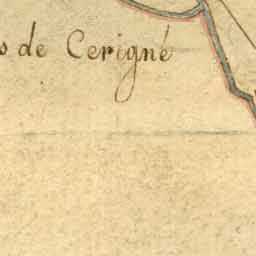 s de Cerigné